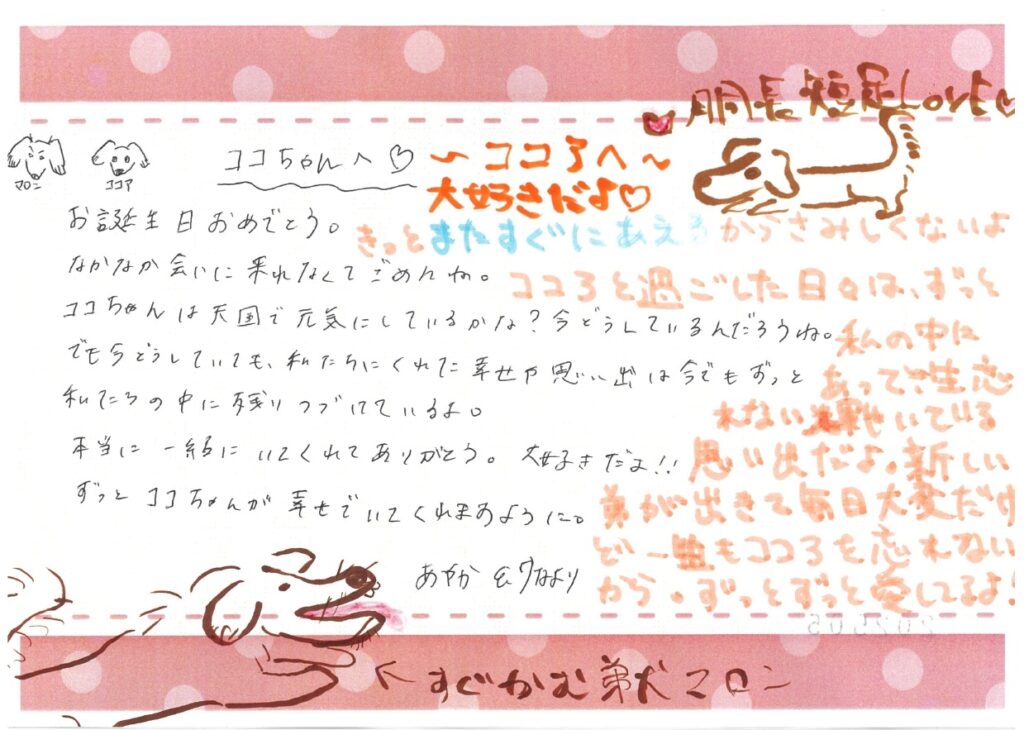 胴長短足LovE♡
マロン
ココア
ココちゃんへ♡
お誕生日おめでとう。
なかなか会いに来れなくてごめんね。
ココちゃんは天国で元気にしているかな?今どうしているんだろうね。
でも今どうしていても、私たちにくれた幸せや思い出は今でもずっと
私たちの中に残りつづけているよ。
本当に一緒にいてくれてありがとう。大好きだよ!!
ずっとココちゃんが幸せでいてくれますように。
あやか &
より
~ココアへ~
大好きだよ♡
きっとまたすぐにあえるからさみしくないよ
ココアと過ごした日々は、ずっと
私の中に
あって、一生忘
れない輝いている
思い出だよ。新しい
弟が出きて毎日大変だけ
ど一匹もココアを忘れない
から。ずっとずっと愛してるよ!
←すぐかむ弟犬マロン